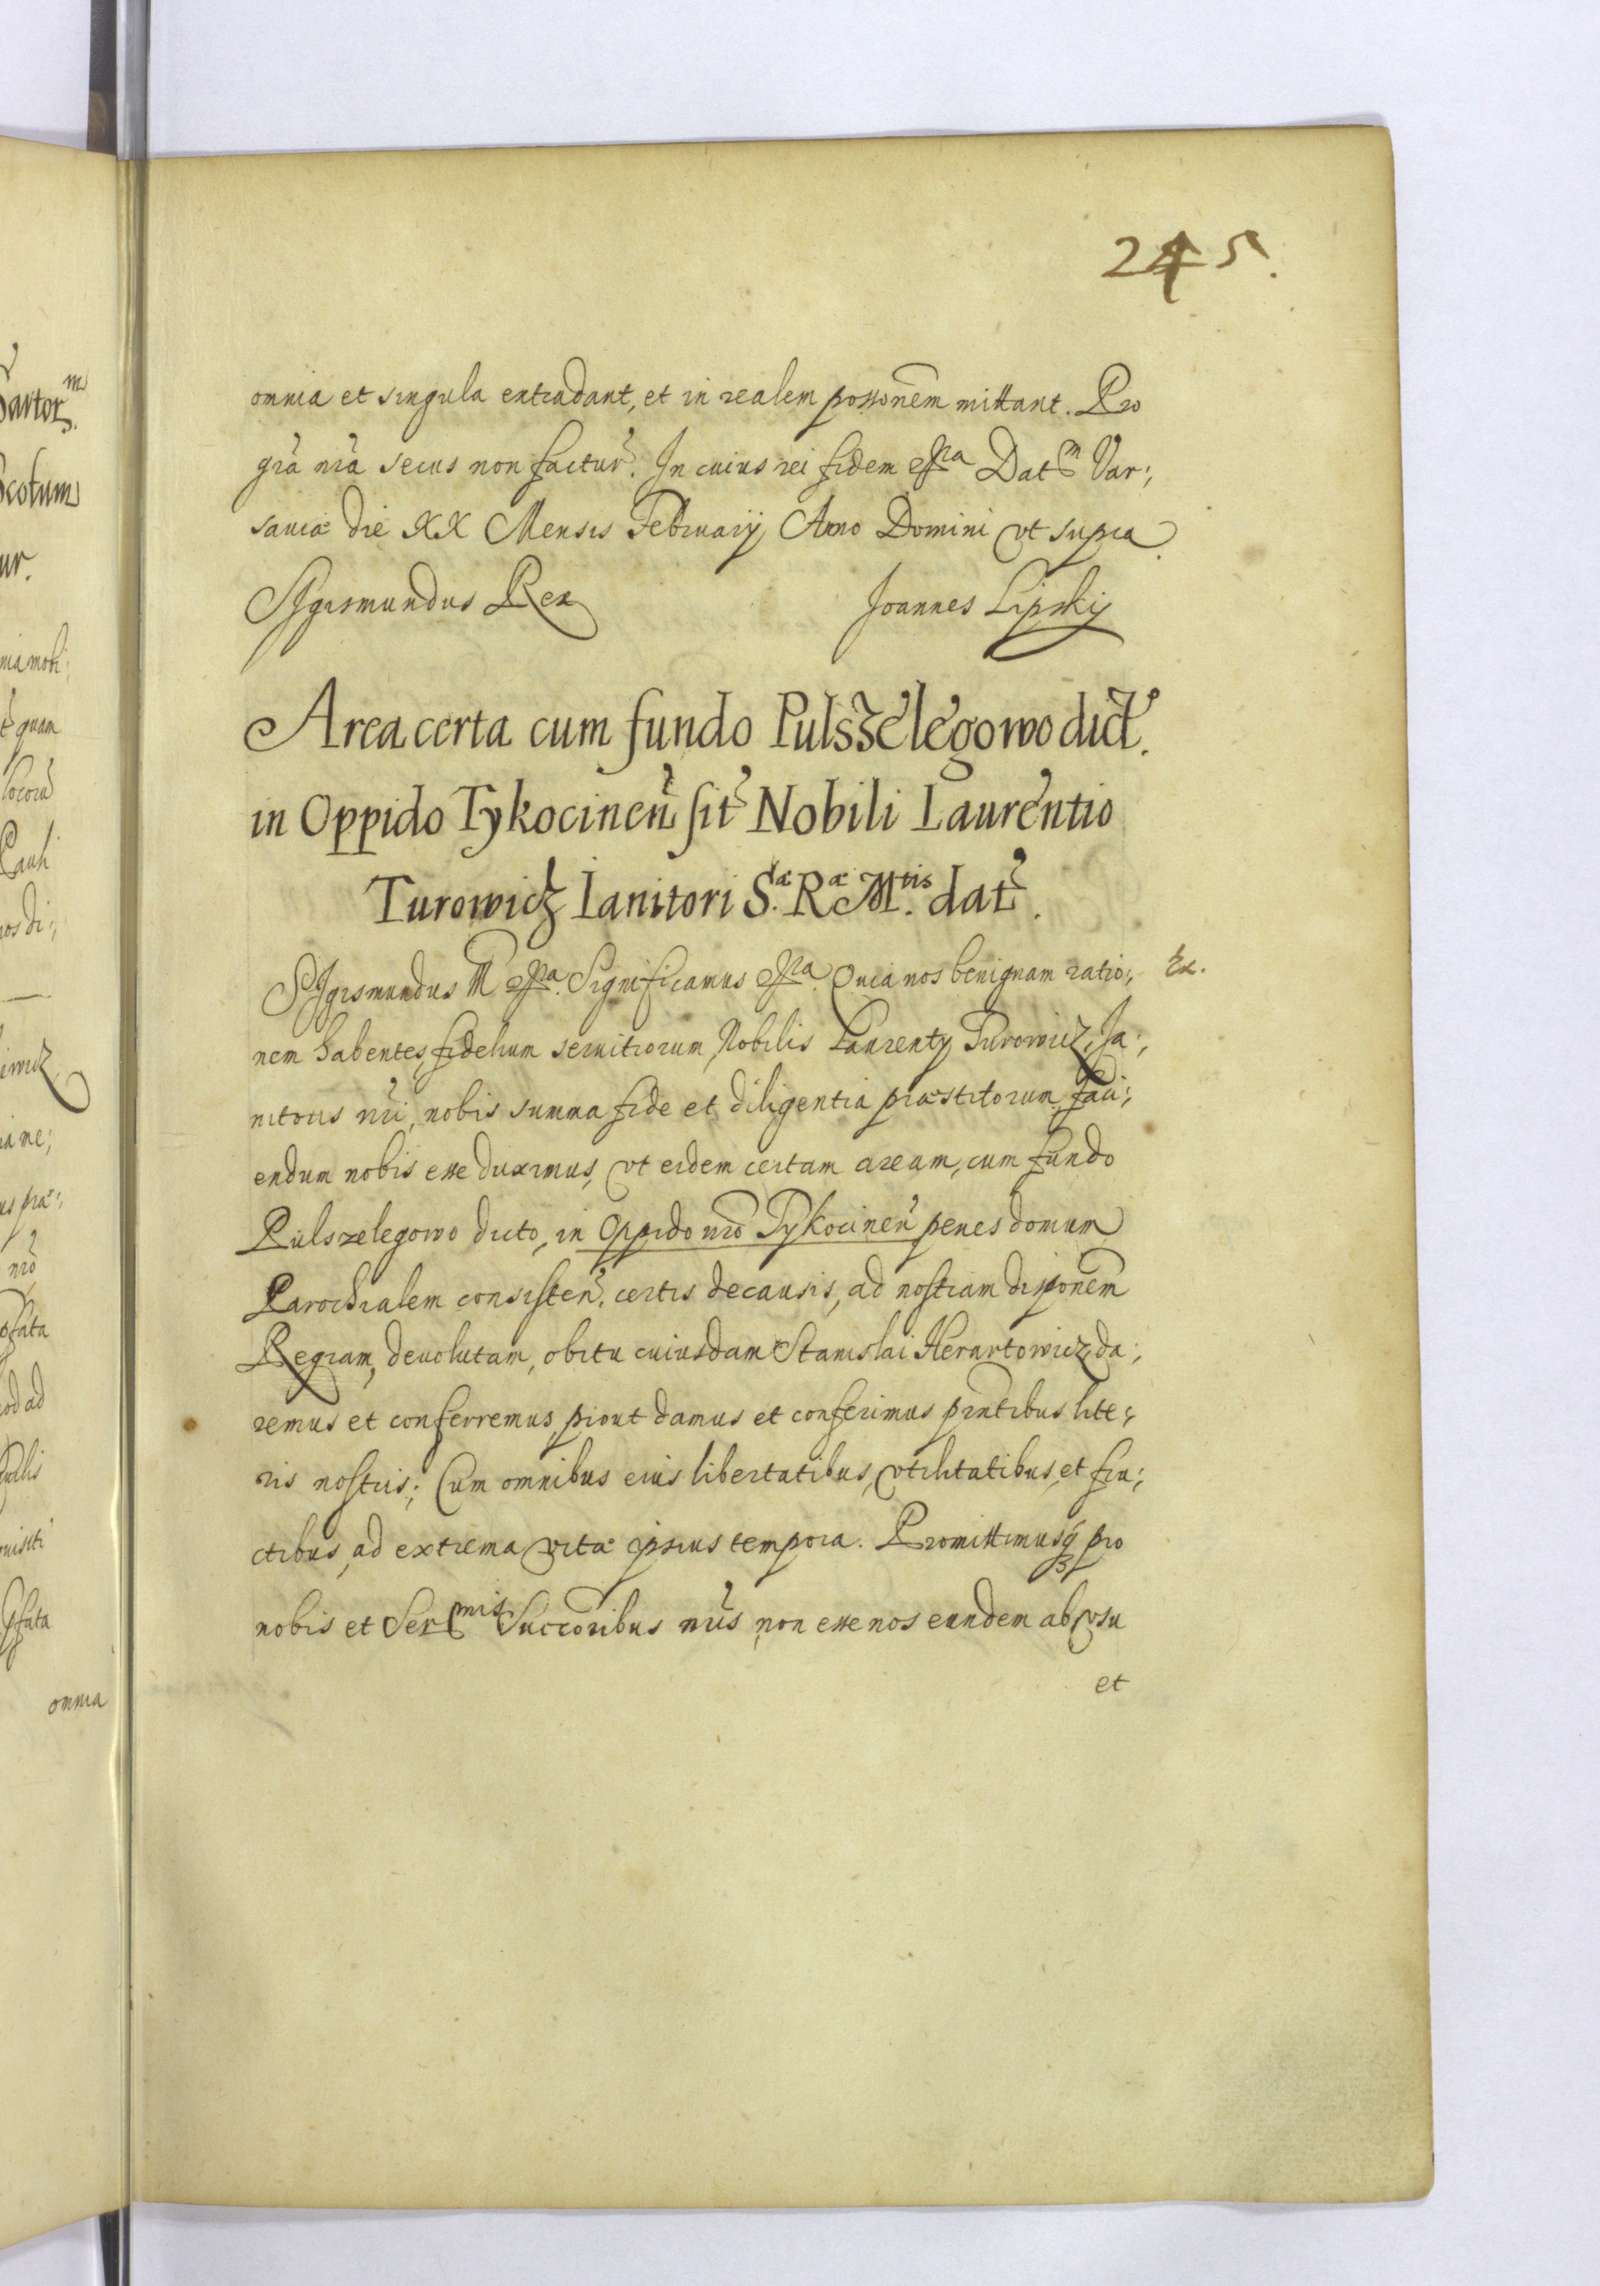 245.
omnia et singula extradant, et in realem possonem mittant. Pro
gra nra secus non factur. In cuius rei fidem etca Datm Var:,
saviæ die XX Mensis February Anno Domini vt supra.
Sigismundus Rex Joannes Lipsky
Area certa cum fundo Pulszelegowo dict.
in Oppido Tykocinen sit Nobili Laurentio
Turowicz Ianitori S.æ Ræ Mtis. dat.
Sigismundus III etca. Significamus etca. Quia nos benignam ratio:, Ex.
nem habentes, fidelium servitiorum, Nobilis Laurenty Turowicz, Ja:,
nitoris nri, nobis summa fide et diligentia præstitorum, faci:,
endum nobis esse duximus, vt eidem certam aream, cum fundo
Pulszelegowo dicto, in Oppido nro Tykocinen penes domum
Parochialem consisten. certis de causis, ad nostram disponem
Regiam, devolutam, obitu cuiusdam Stanislai Herartowicz, da:,
remus et conferremus, prout damus et conferimus pntibus lite:,
ris nostris; Cum omnibus eius libertatibus, vtilitatibus, et fru:,
ctibus, ad extrema vitæ ipsius tempora. Promittimusq pro
nobis et Sermis Succoribus nris, non esse nos eundem ab vsu
et
m
quam
Pauli
ur.
nro
ad
omnia